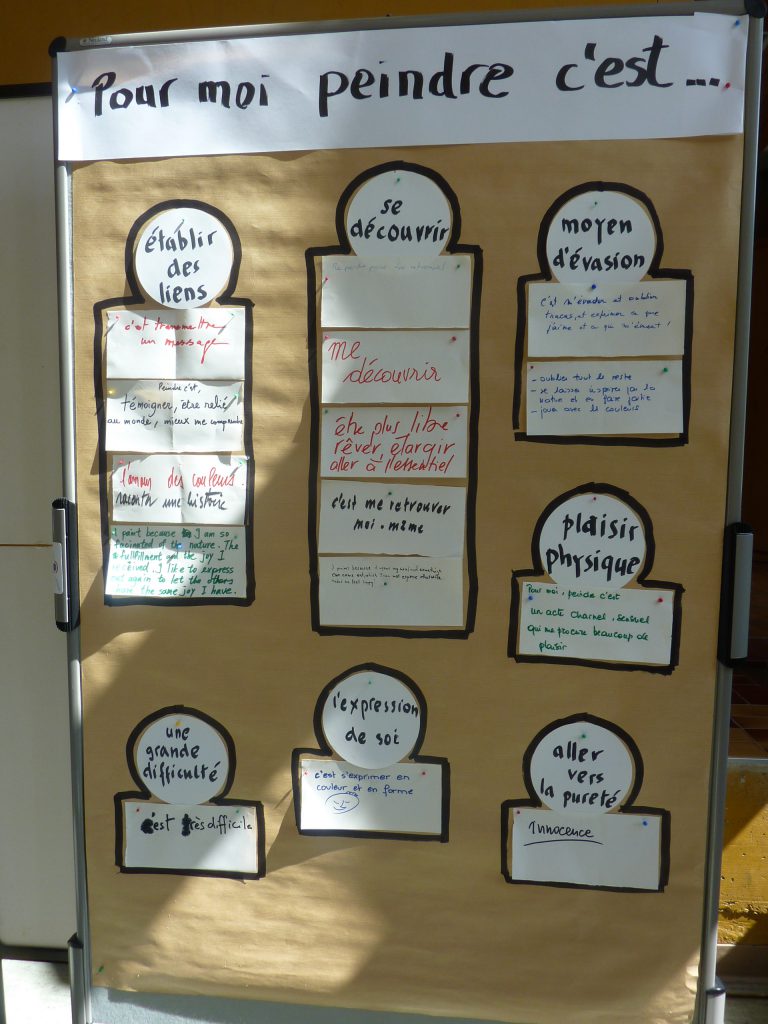 Pour moi peindre c'est...
établir
des
liens
c'est transmettre
un message
Peindre c'est,
témoigner, être relié
au monde, mieux me comprendre
l'amour des couleurs.
raconter une histoire
I paint because I am so
facinated of the nature. The
fullfillment and the joy I
received. I like to express
again to let the others
the same joy I have.
se
découvrir
me
découvrir
être plus libre
rêver, élargir
aller à l'essentiel
c'est me retrouver
moi-même
moyen
d'évasion
c'est m'évader et oublier
tracas, et exprimer ce que
j'aime et ce qui m'émeut!
- oublier tout le reste
- se laisser inspirer par la
nature et en faire partie
- jouer avec les couleurs
plaisir
physique
Pour moi, peindre c'est
un acte charnel, sensuel
qui me procure beaucoup de
plaisir
une
grande
difficulté
c'est très difficile
l'expression
de soi
c'est s'exprimer en
couleur et en forme
aller
vers
la pureté
Innocence